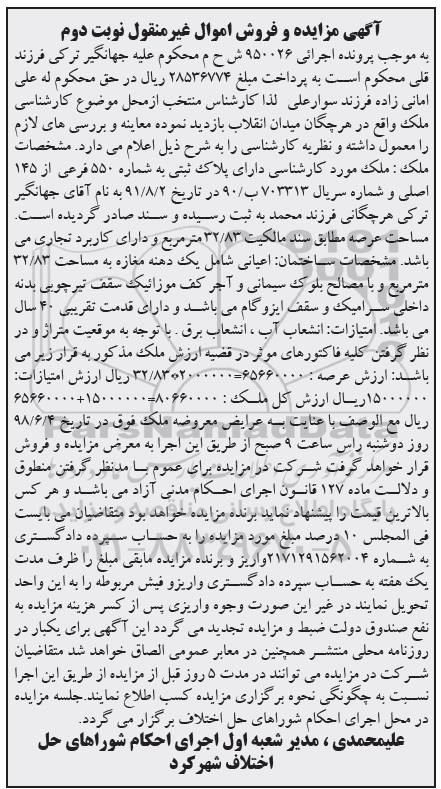 آگهی مزایده و فروش اموال غیرمنقول نوبت دوم
به موجب پرونده اجرائی ۹۵۰۰۲۶ ش ح م محکوم علیه جهانگیر ترکی فرزند
قلی محکوم است به پرداخت مبلغ ۲۸۵۳۶۷۷۴ ریال در حق محکوم له علی
امانی زاده فرزند سوارعلی لذا کارشناس منتخب ازمحل موضوع کارشناسی
ملک واقع در هرچگان میدان انقلاب بازدید نموده معاینه و بررسی های لازم
را معمول داشته و نظریه کارشناسی را به شرح ذیل اعلام می دارد. مشخصات
ملک : ملک مورد کارشناسی دارای پلاک ثبتی به شماره ۵۵۰ فرعی از ۱۴۵
اصلی و شماره سریال ۷۰۳۳۱۳ ب/۹۰ در تاریخ ۹۱/۸/۲ به نام آقای جهانگیر
ترکی هرچگانی فرزند محمد به ثبت رسیده و سند صادر گردیده است.
مساحت عرصه مطابق سند مالکیت ۳۲/۸۳ مترمربع و دارای کاربرد تجاری می
باشد. مشخصات ساختمان: اعیانی شامل یک دهنه مغازه به مساحت ۳۲/۸۳
مترمربع و با مصالح بلوک سیمانی و آجر کف موزائیک سقف تیرچوبی بدنه
داخلی سرامیک و سقف ایزوگام می باشد و دارای قدمت تقریبی ۴۰ سال
می باشد. امتیازات: انشعاب آب ، انشعاب برق . با توجه به موقعیت متراژ و در
نظر گرفتن کلیه فاکتورهای موثر در قضیه ارزش ملک مذکور به قرار زیر می
باشد: ارزش عرصه : ۶۵۶۶۰۰۰۰=۲۰۰۰۰۰۰*۳۲/۸۳ ریال ارزش امتیازات:
۱۵۰۰۰۰۰۰ریال ارزش کل ملک : ۸۰۶۶۰۰۰۰=۱۵۰۰۰۰۰۰+۶۵۶۶۰۰۰۰
ریال مع الوصف با عنایت به عرایض معروضه ملک فوق در تاریخ ۹۸/۶/۴
روز دوشنبه راس ساعت ۹ صبح از طریق این اجرا به معرض مزایده و فروش
قرار خواهد گرفت شرکت در مزایده برای عموم با مدنظر گرفتن منطوق
و دلالت ماده ۱۲۷ قانون اجرای احکام مدنی آزاد می باشد و هر کس
بالاترین قیمت را پیشنهاد نماید برنده مزایده خواهد بود متقاضیان می بایست
فی المجلس ۱۰ درصد مبلغ مورد مزایده را به حساب سپرده دادگستری
به شماره ۲۱۷۱۲۹۱۵۶۲۰۰۴واریز و برنده مزایده مابقی مبلغ را ظرف مدت
یک هفته به حساب سپرده دادگستری واریزو فیش مربوطه را به این واحد
تحویل نمایند در غیر این صورت وجوه واریزی پس از کسر هزینه مزایده به
نفع صندوق دولت ضبط و مزایده تجدید می گردد این آگهی برای یکبار در
روزنامه محلی منتشر همچنین در معابر عمومی الصاق خواهد شد متقاضیان
شرکت در مزایده می توانند در مدت ۵ روز قبل از مزایده از طریق این اجرا
نسبت به چگونگی نحوه برگزاری مزایده کسب اطلاع نمایند.جلسه مزایده
در محل اجرای احکام شوراهای حل اختلاف برگزار می گردد.
علیمحمدی ، مدیر شعبه اول اجرای احکام شوراهای حل
اختلاف شهرکرد